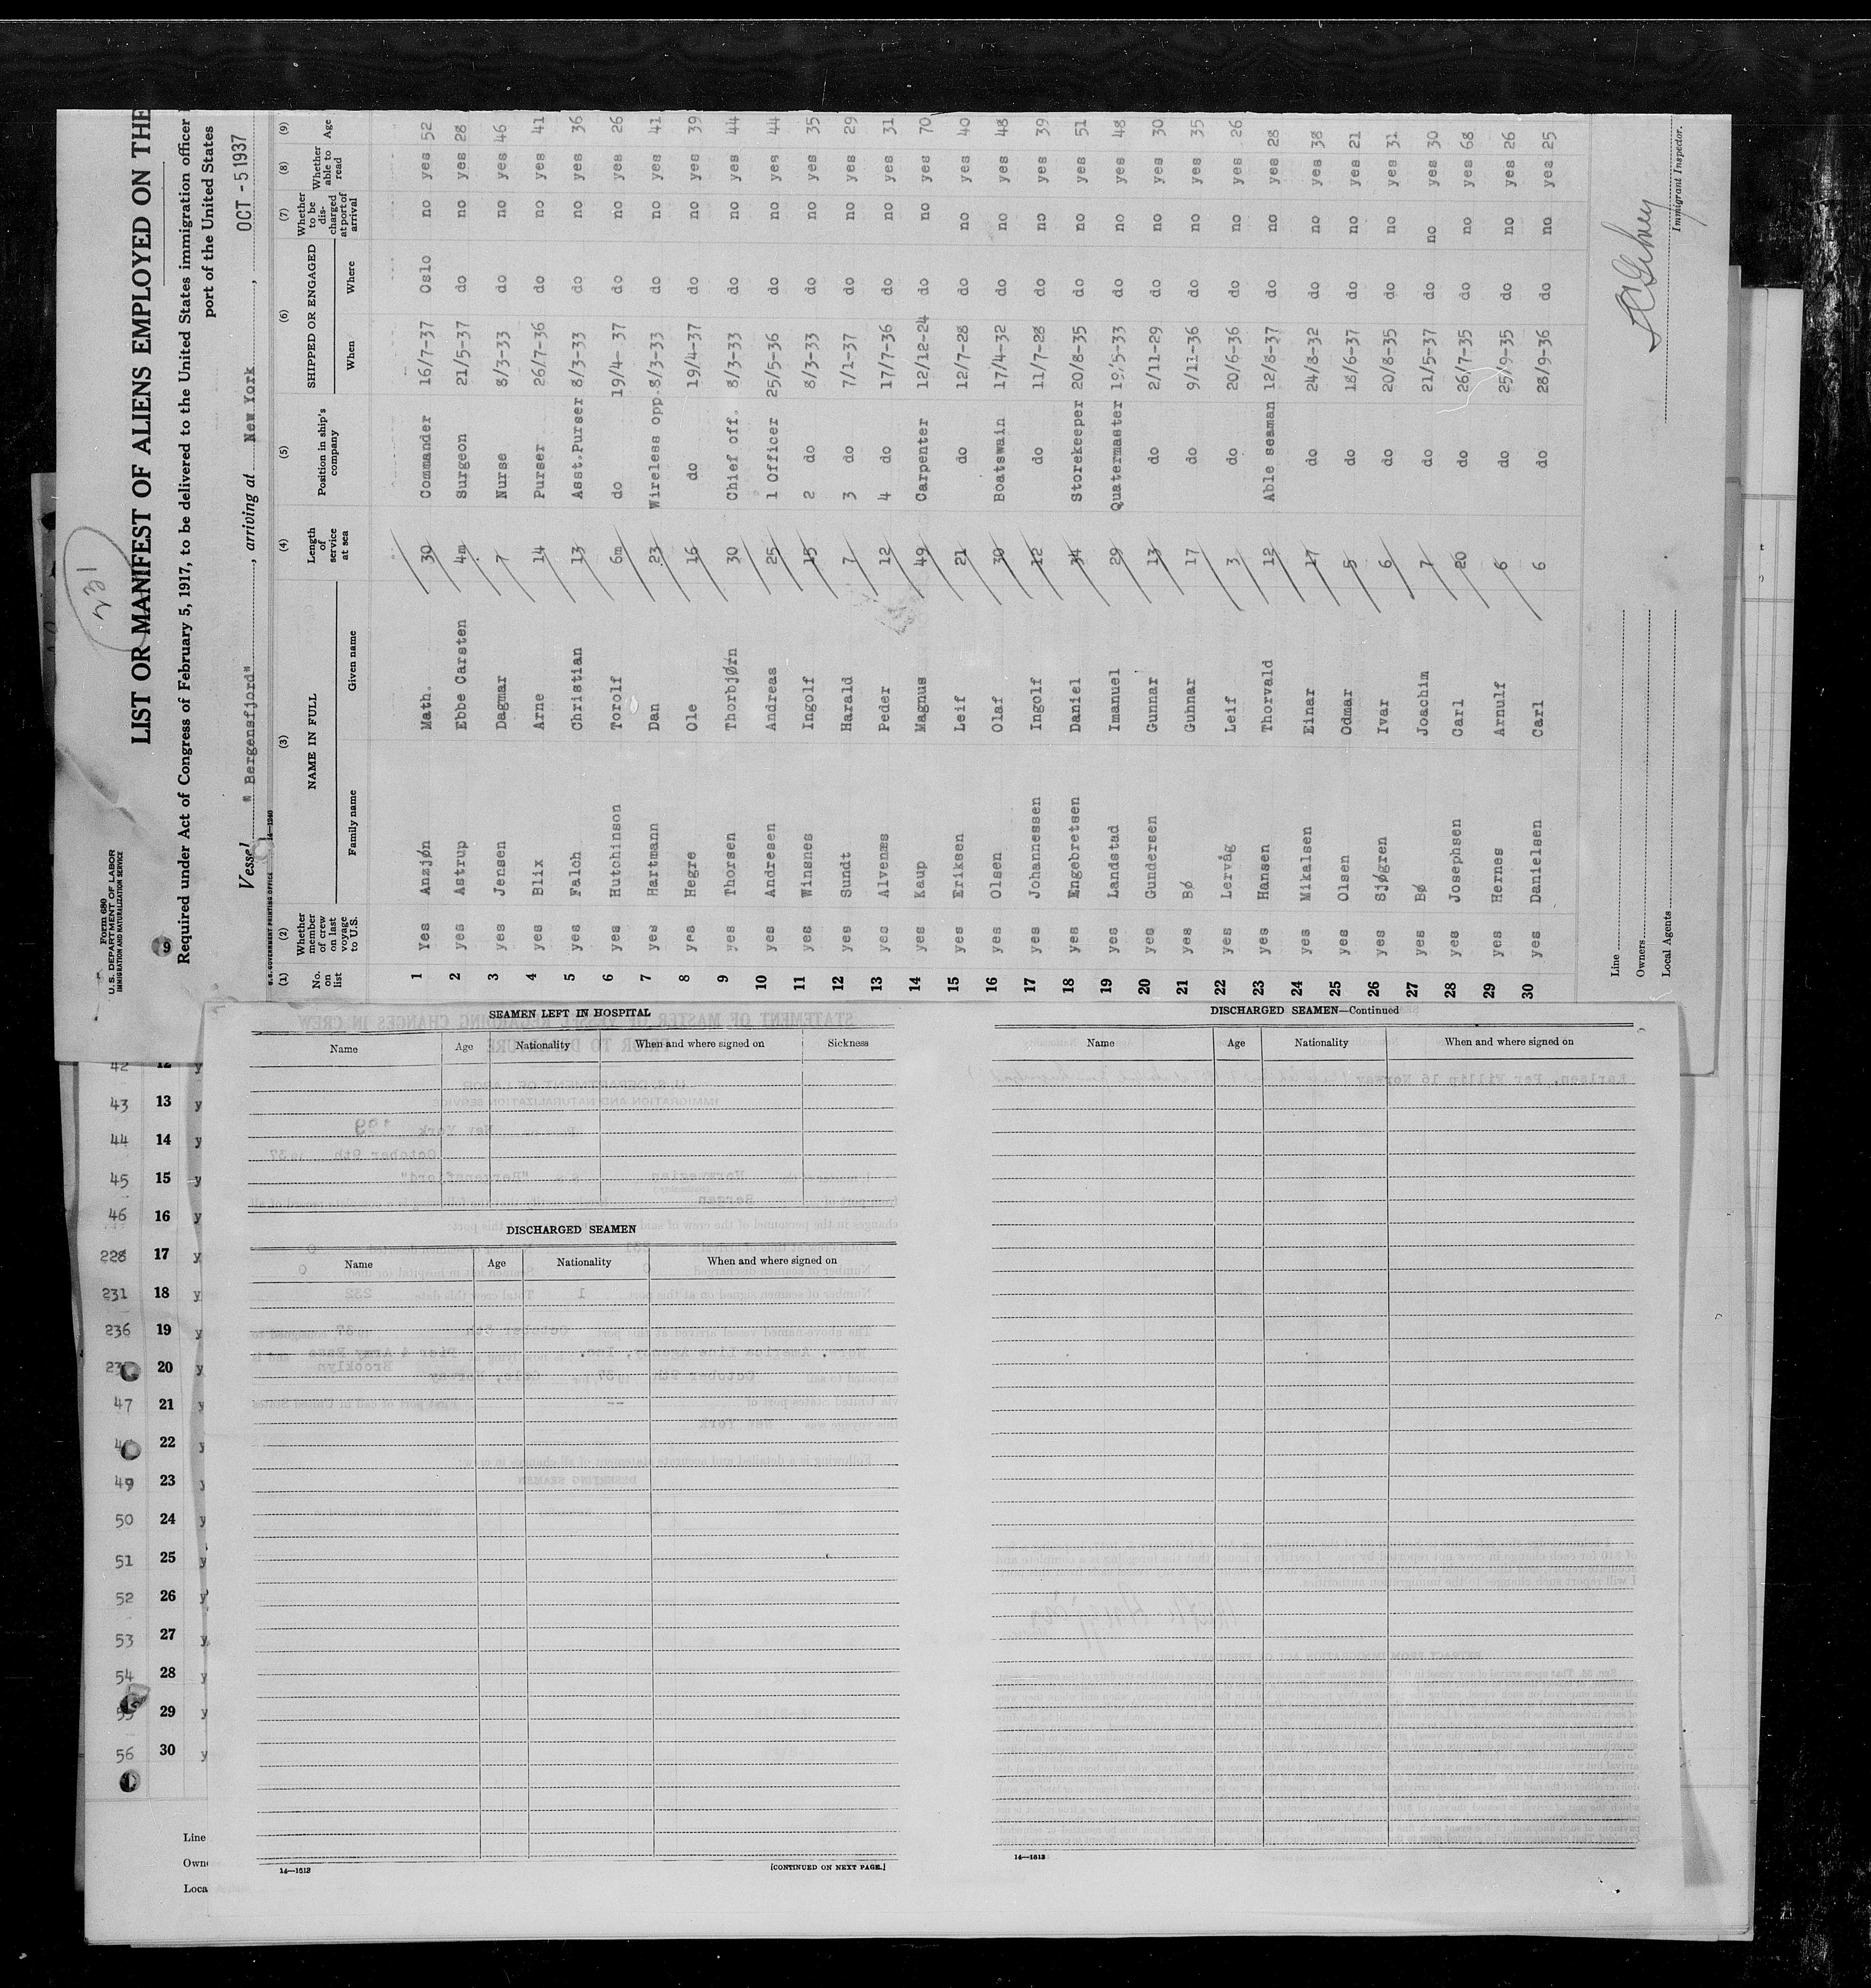 LIST OR MANIFEST OF ALIENS EMPLOYED ON THE
Form 680
U. S. DEPARTMENT OF LABOR
IMMIGRATION AND NATURALIZATION SERVICE
Required under Act of Congress of February 5, 1917, to be delivered to the United States immigration officer
port of the United States
Vessel " Bergensfjord" , arriving at New York , OCT -5 1937
U.S. GOVERNMENT PRINTING OFFICE 14—1240
(1) (2) (3) (4) (5) (6) (7) (8) (9)
No. on list Whether member of crew on last voyage to U.S. NAME IN FULL Length of service at sea Position in ship's company SHIPPED OR ENGAGED Whether to be discharged at port of arrival Whether able to read Age
Family name Given name When Where
1 Yes Anzjøn Math. 30 Commander 16/7-37 Oslo no yes 52
2 yes Astrup Ebbe Carsten 4m Surgeon 21/5-37 do no yes 28
3 yes Jensen Dagmar 7 Nurse 8/3-33 do no yes 46
4 yes Blix Arne 14 Purser 26/7-36 do no yes 41
5 yes Falch Christian 13 Asst.Purser 8/3-33 do no yes 36
6 yes Hutchinson Torolf 6m do 19/4- 37 do no yes 26
7 yes Hartmann Dan 23 Wireless opp. 8/3-33 do no yes 41
8 yes Hegre Ole 16 do 19/4-37 do no yes 39
9 yes Thorsen Thorbjørn 30 Chief off. 8/3-33 do no yes 44
10 yes Andresen Andreas 25 1 Officer 25/5-36 do no yes 44
11 yes Winsnes Ingolf 15 2 do 8/3-33 do no yes 35
12 yes Sundt Harald 7 3 do 7/1-37 do no yes 29
13 yes Alvenæs Peder 12 4 do 17/7-36 do no yes 31
14 yes Kaup Magnus 49 Carpenter 12/12-24 do no yes 70
15 yes Eriksen Leif 21 do 12/7-28 do no yes 40
16 yes Olsen Olaf 30 Boatswain 17/4-32 do no yes 48
17 yes Johannessen Ingolf 12 do 11/7-28 do no yes 39
18 yes Engebretsen Daniel 34 Storekeeper 20/8-35 do no yes 51
19 yes Landstad Imanuel 29 Quatermaster 19/5-33 do no yes 48
20 yes Gundersen Gunnar 13 do 2/11-29 do no yes 30
21 yes Bø Guhnar 17 do 9/11-36 do no yes 35
22 yes Lervåg Leif 3 do 20/6-36 do no yes 26
23 yes Hansen Thorvald 12 Able seaman 12/8-37 do no yes 28
24 yes Mikalsen Einar 17 do 24/8-32 do no yes 38
25 yes Olsen Odmar 5 do 18/6-37 do no yes 21
26 yes Sjøgren Ivar 6 do 20/8-35 do no yes 31
27 yes Bø Joachim 7 do 21/5-37 do no yes 30
28 yes Josephsen Carl 20 do 26/7-35 do no yes 68
29 yes Hernes Arnulf 6 do 25/9-35 do no yes 26
30 yes Danielsen Carl 6 do 28/9-36 do no yes 25
Line
Owners
Local Agents
Immigrant Inspector.
42 12 y
43 13 y
44 14 y
45 15 y
46 16 y
228 17 y
231 18 y
236 19 y
20 y
47 21 y
22 y
49 23 y
50 24 y
51 25 y
52 26 y
53 27 y
54 28 y
55 29 y
56 30 y
Line
Own
Loca
SEAMEN LEFT IN HOSPITAL
Name Age Nationality When and where signed on Sickness
DISCHARGED SEAMEN
Name Age Nationality When and where signed on
14—1613
[CONTINUED ON NEXT PAGE.]
DISCHARGED SEAMEN—Continued
Name Age Nationality When and where signed on
14—1613